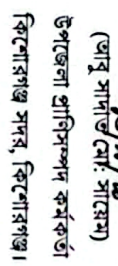 (আবু সাদাত মো: সায়েম)
উপজেলা প্রাণিসম্পদ কর্মকর্তা
কিশোরগঞ্জ সদর, কিশোরগঞ্জ।